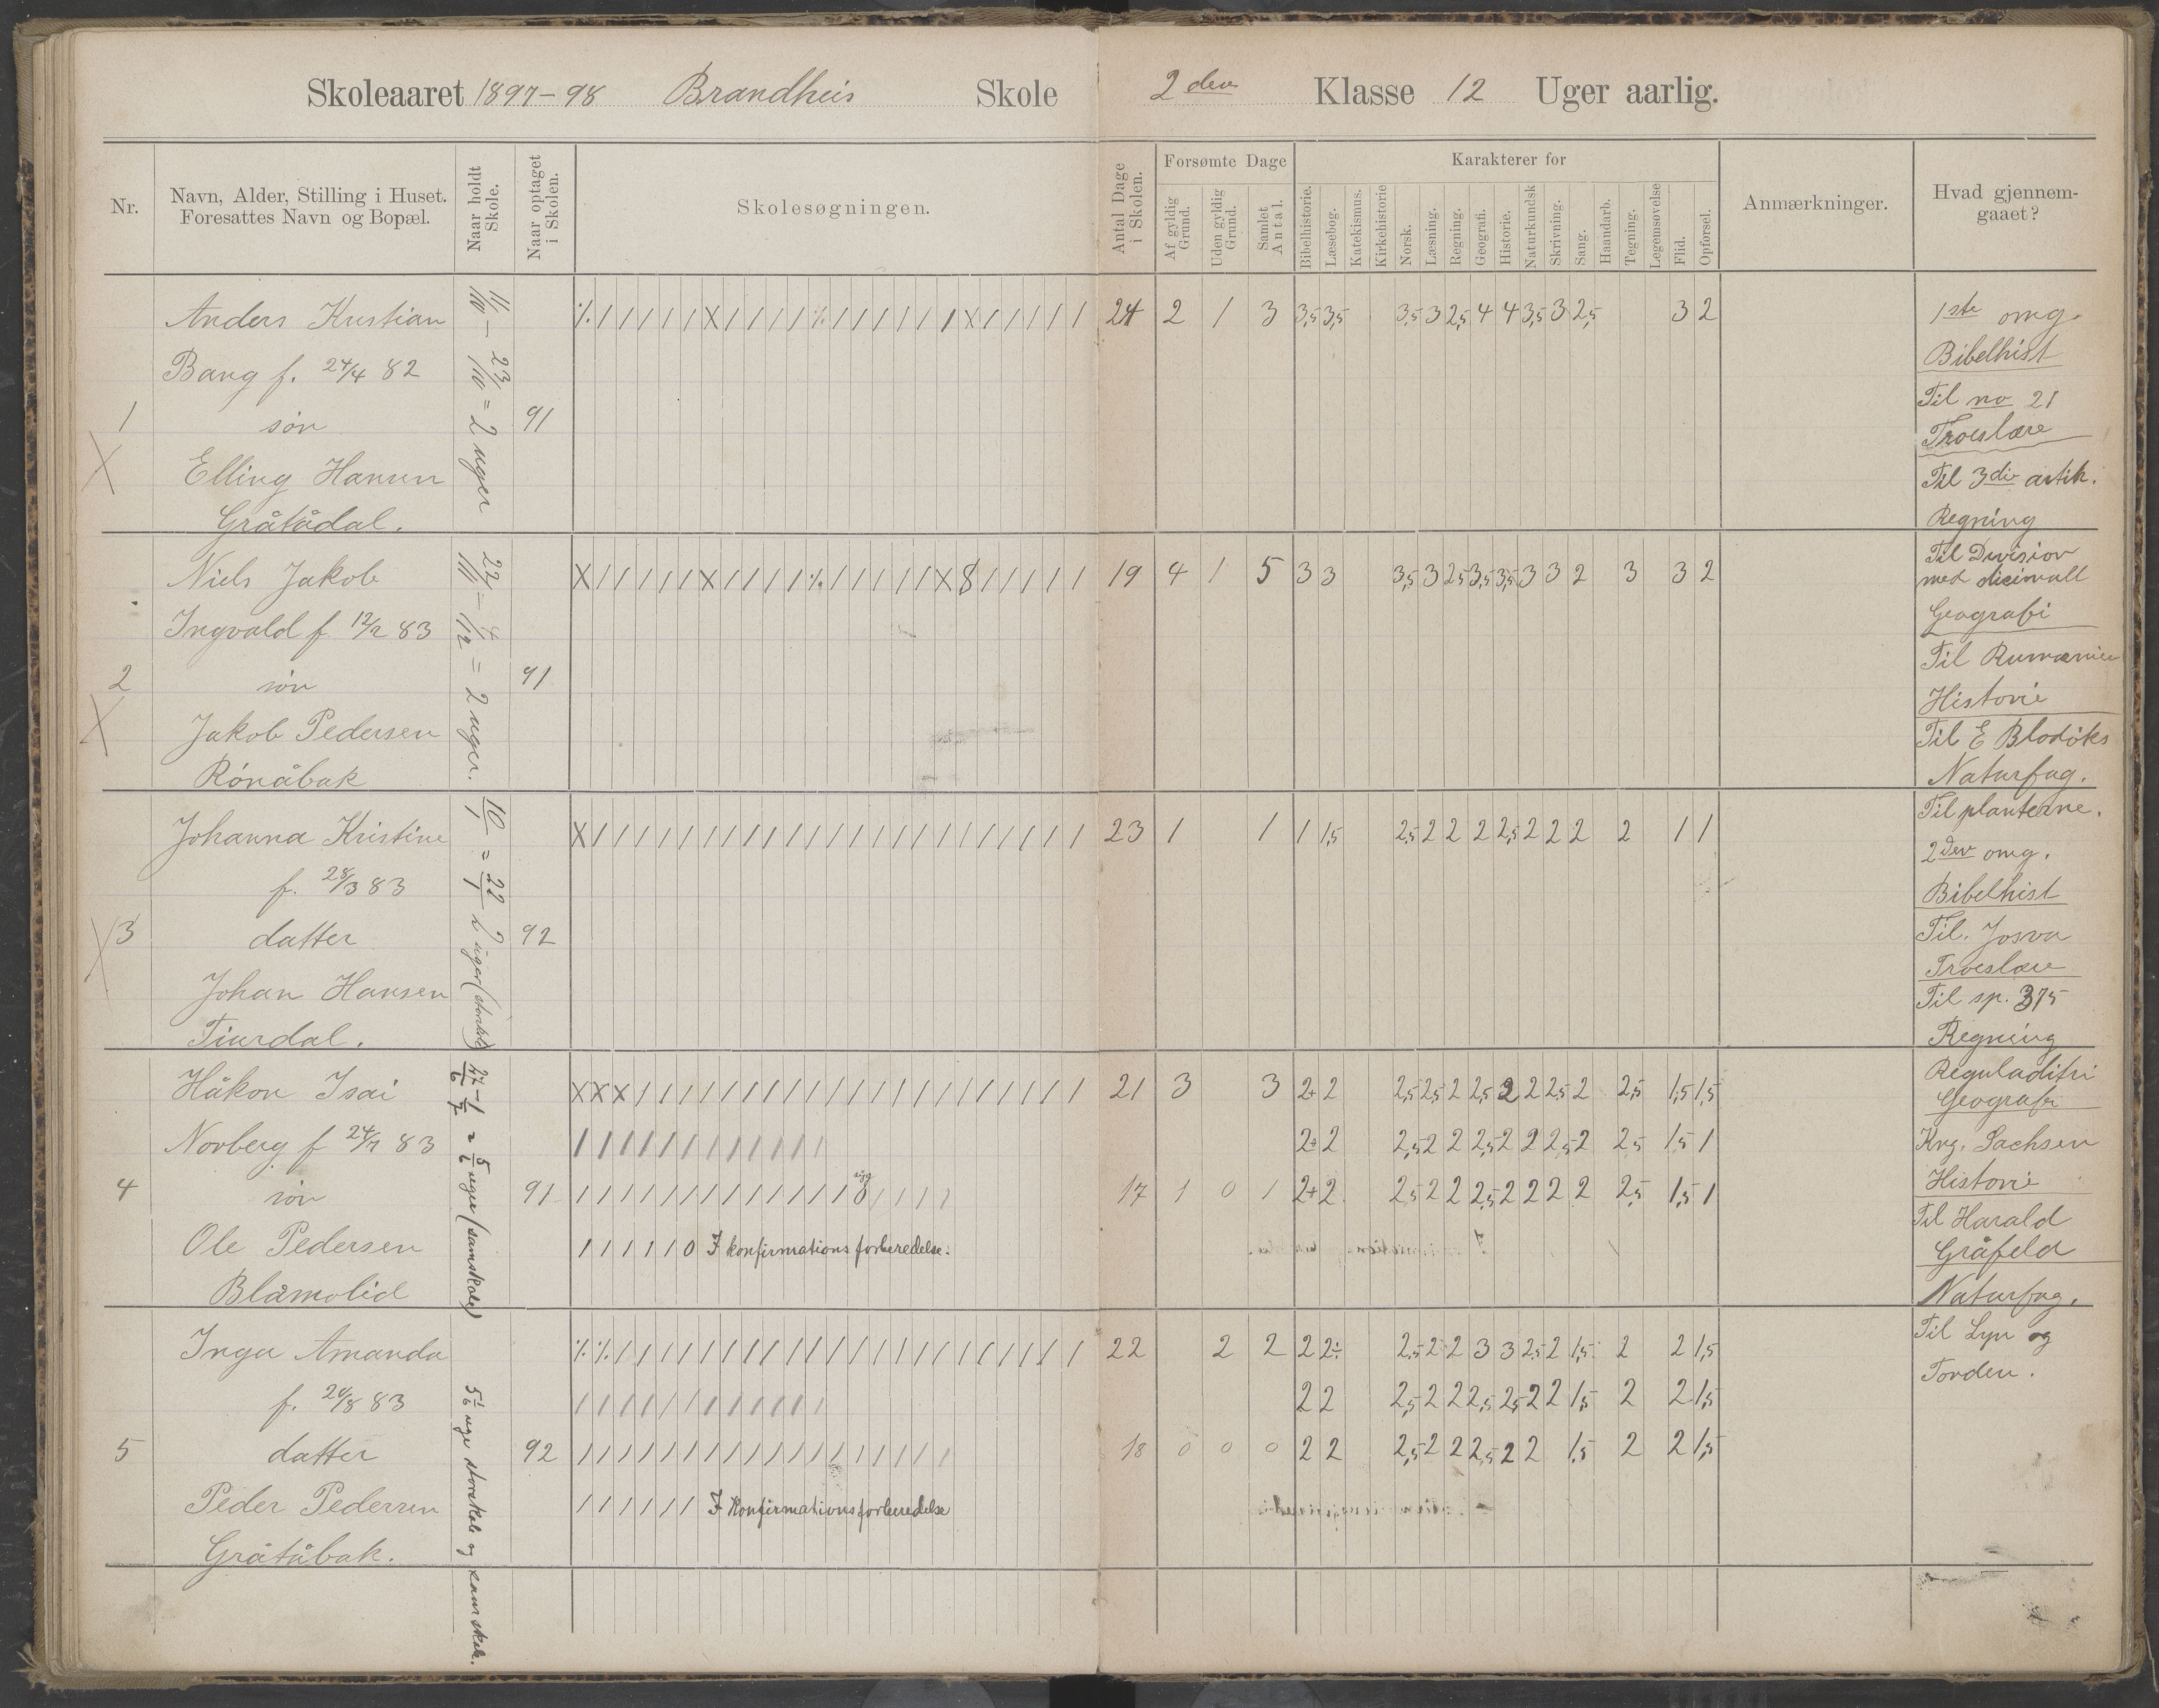 Skoleaaret 1897-98 Brandheis Skole 2den Klasse 12 Uger aarlig.
Nr.
Navn, Alder, Stilling i Huset.
Foresattes Navn og Bopæl.
Naar holdt
Skole.
Naar optaget
i Skolen.
Skolesøgningen.
Antal Dage
i Skolen.
Forsømte Dage
Af gyldig
Grund.
Uden gyldig
Grund.
Samlet
Antal.
Karakterer for
Bibelhistorie.
Læsebog.
Katekismus.
Kirkehistorie
Norsk.
Læsning.
Regning.
Geografi.
Historie.
Naturkundsk
Skrivning.
Sang.
Haandarb.
Tegning.
Legemsøvelse
Flid.
Opførsel.
Anmærkninger.
Hvad gjennem-
gaaet?
Anders Kristian
Bang f. 24/4 82
1 søn 91
Elling Hansen
Gråtådal.
11/10 - 23/10 = 2 uger
24 2 1 3 3,5 3,5 3,5 3 2,5 4 4 3,5 3 2,5 3 2
Niels Jakob
Ingvald f 12/2 83
2 søn 91
Jakob Pedersen
Rønåbak
22/11 - 4/12 = 2 uger.
19 4 1 5 3 3 3,5 3 2,5 3,5 3,5 3 3 2 3 3 2
Johanna Kristine
f. 28/3 83
3 datter 92
Johan Hansen
Tiurdal.
10/1 = 22/1 2 uger (storskole)
23 1 1 1 1,5 2,5 2 2 2 2,5 2 2 2 2 1 1
Håkon Isai
Norberg f 24/7 83
4 søn 91
Ole Pedersen
Blåmolid
21 3 3 2+ 2 2,5 2,5 2 2,5 2 2 2,5 2 2,5 1,5 1,5
2+ 2 2,5 2 2 2,5 2 2 2,5 2 2,5 1,5 1
17 1 0 1 2+ 2 2,5 2 2 2,5 2 2 2 2 2,5 1,5 1
syg
I konfirmationsforberedelse.
Inga Amanda
f. 24/8 83
5 datter 92
Peder Pedersen
Gråtåbak.
22 2 2 2 2÷ 2,5 2 2 3 3 2,5 2 1,5 2 2 1,5
2 2 2,5 2 2 2,5 2,5 2 2 1,5 2 2 1,5
18 0 0 0 2 2 2,5 2 2 2,5 2 2 1,5 2 2 1,5
I Konfirmationsforberedelse
1ste omg.
Bibelhist
Til no 21
Troeslære
Til 3die artik.
Regning
Til Division
med dicimall
Geografi
Til Rumænien
Historie
Til E Blodøks
Naturfag.
Til planterne.
2den omg.
Bibelhist
Til. Josva
Troeslære
Til sp. 375
Regning
Reguladitri
Geografi
Krg. Sachsen
Historie
Til Harald
Gråfeld
Naturfag.
Til Lyn og
Torden.